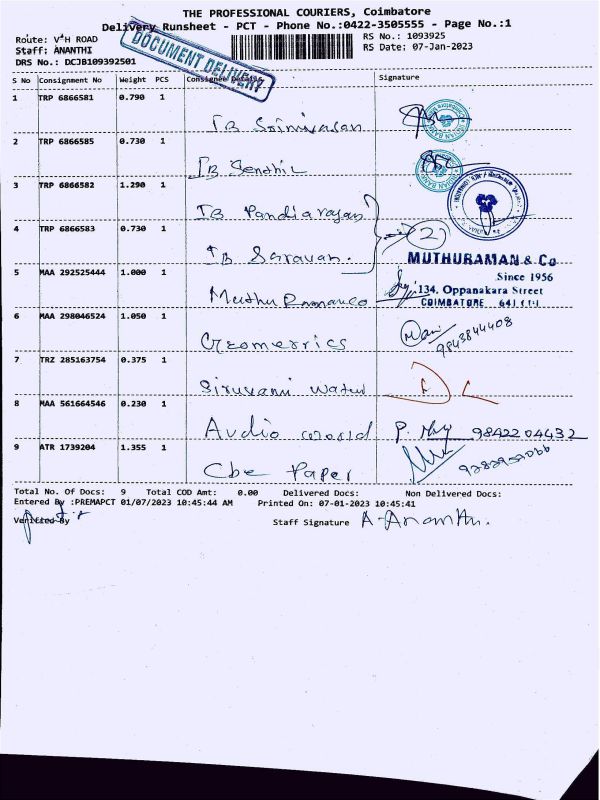 THE PROFESSIONAL COURIERS, Coimbatore
Delivery Runsheet - PCT - Phone No.:0422-3505555 - Page No.:1
Route: V^H ROAD
RS No.: 1093925
Staff: ANANTHI
RS Date: 07-Jan-2023
DRS No.: DCJB109392501
DOCUMENT DELIVERY
S No Consignment No Weight PCS Consignee Details Signature
1 TRP 6866581 0.790 1
IB Srinivasan
2 TRP 6866585 0.730 1
IB Senthil
3 TRP 6866582 1.290 1
IB Pandiarajan
4 TRP 6866583 0.730 1
IB Saravan. 2
MUTHURAMAN & Co
Since 1956
5 MAA 292525444 1.000 1
134, Oppanakara Street
COIMBATORE
6 MAA 298046524 1.050 1
Geometrics Mani 9843844408
7 TRZ 285163754 0.375 1
Siruvani Water
8 MAA 561664546 0.230 1
Audio world 9842204432
9 ATR 1739204 1.355 1
Cbe Paper
Total No. Of Docs: 9 Total COD Amt: 0.00 Delivered Docs: Non Delivered Docs:
Entered By :PREMAPCT 01/07/2023 10:45:44 AM Printed On: 07-01-2023 10:45:41
Verified By
Staff Signature A. Ananthi.